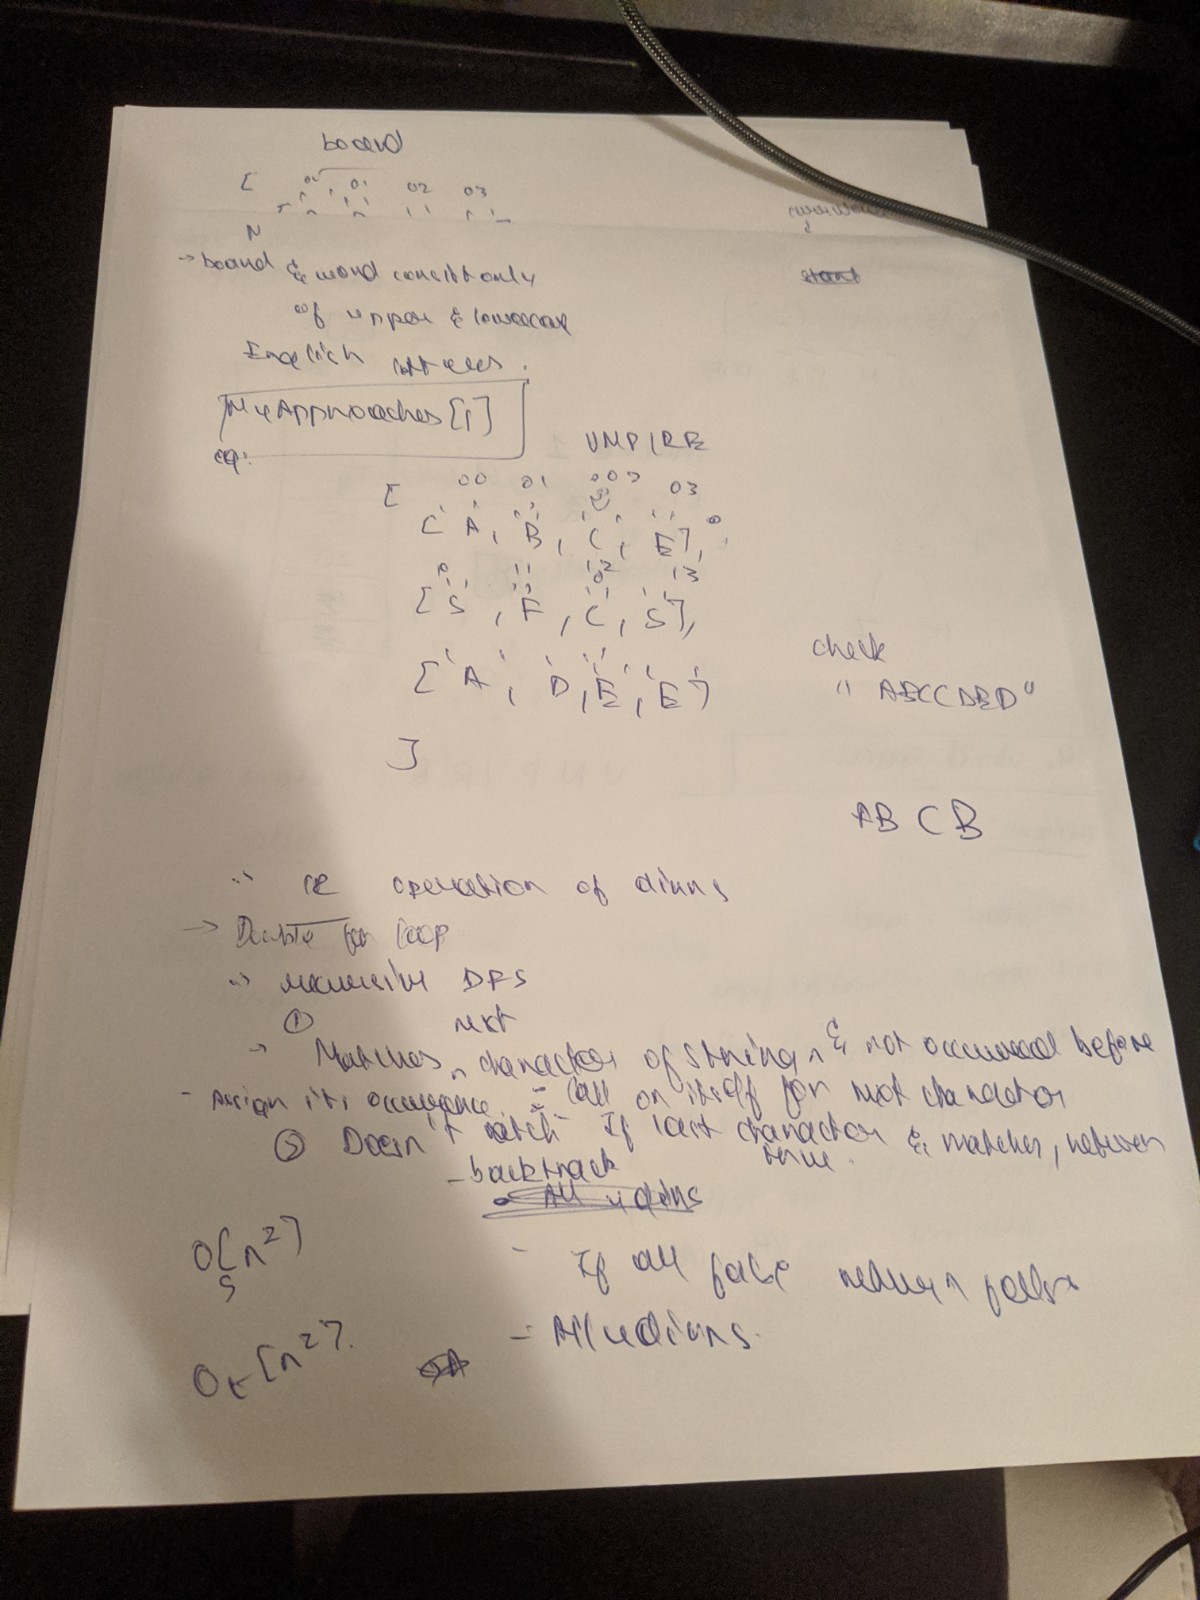 board
[ 00 01 02 03
N
→ board & word consist only
of upper & lowercase
English letters.
My Approaches [1]
eg:
UMPIRE
[ 00 01 02 03
['A', 'B', 'C', 'E'],
11 12 13
['S', 'F', 'C', 'S'],
['A', 'D', 'E', 'E']
]
check
"ABCCDED"
ABCB
operation of dirns
→ Double for loop
recursive DFS
① next
→ Matches character of string & not occurred before
- Assign its occurrence. - Call on itself for next character
② Doesn't match - If last character & matches, return
true.
- backtrack
All 4 dirns
O_S[n²]
- If all false return false
- All 4 dirns.
O_t[n²].